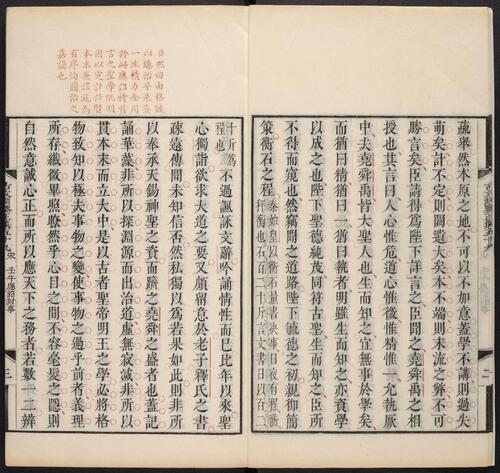 臣熙曰由格致
以臻治平朱熹
一生精力全用
於此應詔特首
言之聖學既明
因以定計任賢
本末兼修施為
有序洵圖治之
嘉謨也
疏舉然本原之地不可以不加意蓋學不講則過失
萌矣計不定則闕遺大矣本不端則末流之弊不可
勝言矣臣請得為陛下詳言之臣聞之堯舜禹之相
授也其言曰人心惟危道心惟微惟精惟一允執厥
中夫堯舜禹皆大聖人也生而知之宜無事於學矣
而猶曰精猶曰一猶曰執者明雖生而知之亦資學
以成之也陛下聖德純茂同符古聖生而知之臣所
不得而窺也然竊聞之道路陛下毓德之初親御簡
策衡石之程
二
十所為
程也
不過諷詠文辭吟諷情性而已比年以來聖
心獨詣欲求夫道之要又頗留意於老子釋氏之書
疎遠傳聞未知信否然私獨以為若果如此則非所
以奉承天錫神聖之資而躋之堯舜之盛者也蓋記
誦華藻非所以探淵源而出治道虛無寂滅非所以
貫本末而立大中是以古者聖帝明王之學必將格
物致知以極夫事物之變使事物之過乎前者義理
所存纖微畢照瞭然乎心目之間不容毫髮之隱則
自然意誠心正而所以應天下之務者若數一二辨
壬午應詔封事
三